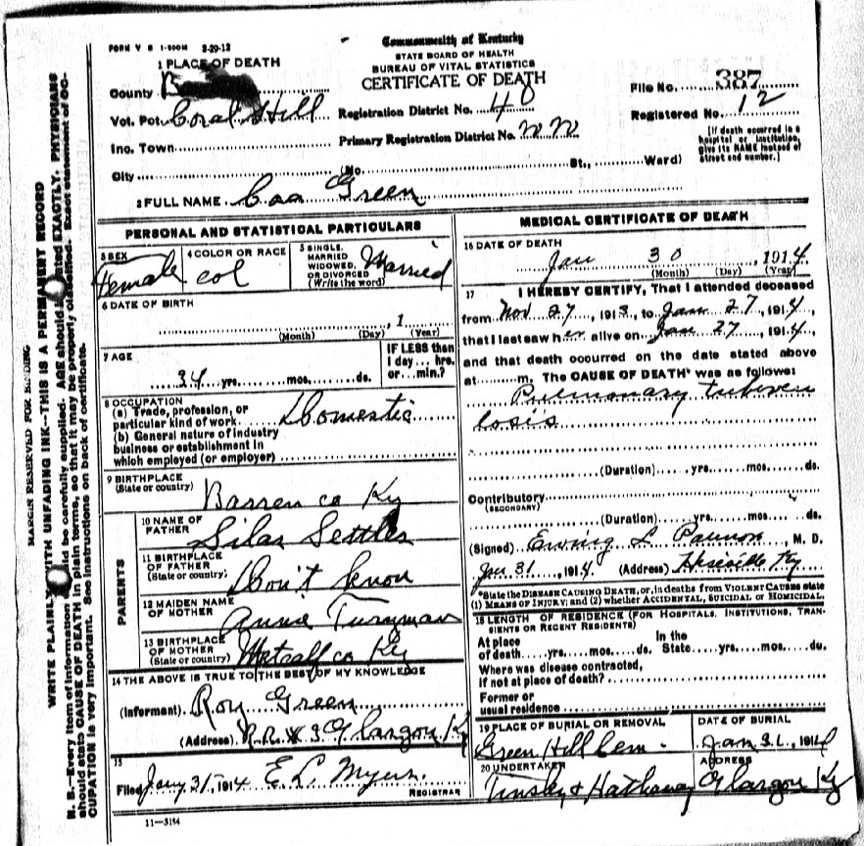 FORM V S 1-500M 3-29-12
Commonwealth of Kentucky
STATE BOARD OF HEALTH
BUREAU OF VITAL STATISTICS
CERTIFICATE OF DEATH
1 PLACE OF DEATH
County
Vot. Pct. Coral Hill
Inc. Town
City
Registration District No. 40
Primary Registration District No.
File No. 387
Registered No. 12
No. St., Ward)
[If death occurred in a
hospital or institution,
give its NAME instead of
street and number.]
2 FULL NAME Green
PERSONAL AND STATISTICAL PARTICULARS
3 SEX
Female
4 COLOR OR RACE
col
5 SINGLE,
MARRIED
WIDOWED,
OR DIVORCED
(Write the word)
Married
6 DATE OF BIRTH
, 1
(Month) (Day) (Year)
7 AGE
34 yrs. mos. ds.
IF LESS than
1 day... hrs.
or... min.?
8 OCCUPATION
(a) Trade, profession, or
particular kind of work Domestic
(b) General nature of industry
business or establishment in
which employed (or employer)
9 BIRTHPLACE
(State or country)
Barren co Ky
PARENTS
10 NAME OF
FATHER
Silas Settles
11 BIRTHPLACE
OF FATHER
(State or country)
Don't know
12 MAIDEN NAME
OF MOTHER
Annie Turyman
13 BIRTHPLACE
OF MOTHER
(State or country)
Metcalf co Ky
14 THE ABOVE IS TRUE TO THE BEST OF MY KNOWLEDGE
(Informant) Roy Green
(Address) R.R. # 3 Glasgow Ky
15
Filed Jany 31, 1914 E. L. Myers.
REGISTRAR
11—3184
MEDICAL CERTIFICATE OF DEATH
16 DATE OF DEATH
Jan 30, 1914
(Month) (Day) (Year)
17 I HEREBY CERTIFY, That I attended deceased
from Nov 27, 1913, to Jan 27, 1914,
that I last saw her alive on Jan 27, 1914,
and that death occurred on the date stated above
at m. The CAUSE OF DEATH* was as follows:
Pulmonary tubercu
losis
(Duration) yrs. mos. ds.
Contributory
(SECONDARY)
(Duration) yrs. mos. ds.
(Signed) Ewing L. M. D.
Jan 31, 1914 (Address) Hiseville Ky
*State the DISEASE CAUSING DEATH, or, in deaths from VIOLENT CAUSES state
(1) MEANS OF INJURY; and (2) whether ACCIDENTAL, SUICIDAL or HOMICIDAL.
18 LENGTH OF RESIDENCE (FOR HOSPITALS, INSTITUTIONS, TRAN-
SIENTS OR RECENT RESIDENTS)
At place
of death yrs. mos. ds.
In the
State yrs. mos. ds.
Where was disease contracted,
if not at place of death?
Former or
usual residence
19 PLACE OF BURIAL OR REMOVAL
Green Hill Cem.
DATE OF BURIAL
Jan 31, 1914
20 UNDERTAKER
Tinsley & Hathaway
ADDRESS
Glasgow Ky
MARGIN RESERVED FOR BINDING
WRITE PLAINLY WITH UNFADING INK—THIS IS A PERMANENT RECORD
N. B.—Every item of information should be carefully supplied. AGE should be stated EXACTLY. PHYSICIANS
should state CAUSE OF DEATH in plain terms, so that it may be properly classified. Exact statement of OC-
CUPATION is very important. See instructions on back of certificate.